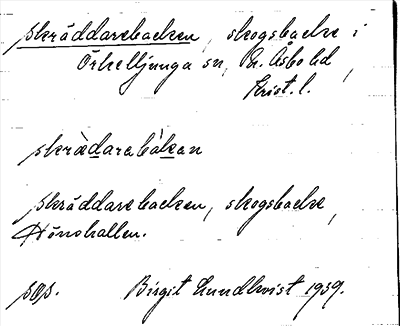 Skräddarebacken, skogsbacke i
Örkelljunga sn, N. Åsbo hd,
Krist. l.
skrädarebàkan
Skräddarebacken, skogsbacke,
Hönshallen.
sqs. Birgit Lundkvist 1939.